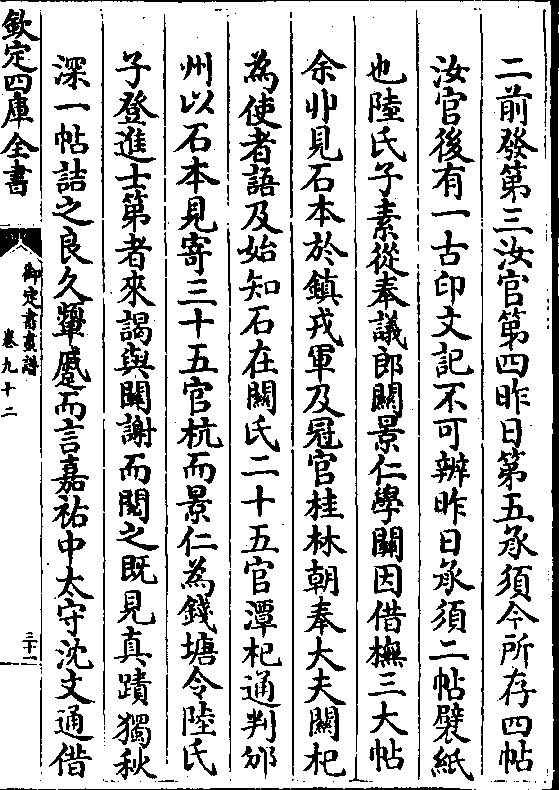 二前發第三汝官第四昨日第五承須今所存四帖
汝官後有一古印文記不可辨昨日承須二帖襞紙
也陸氏子素從奉議郎關景仁學關因借橅三大帖
余丱見石本於鎮戎軍及冠官桂林朝奉大夫關杞
為使者語及始知石在關氏二十五官潭杞通判邠
州以石本見寄三十五官杭而景仁為錢塘令陸氏
子登進士第者來謁與關謝而閱之既見真蹟獨秋
深一帖詰之良久顰蹙而言嘉祐中太守沈文通借
欽定四庫全書
御定書畫譜
卷九十二
三十一